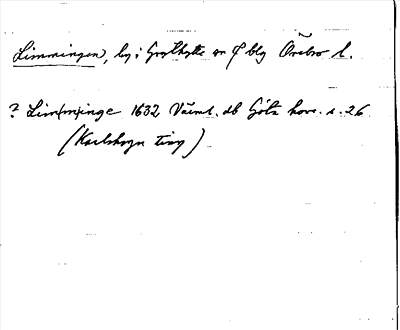 Limmingen, by i Grythytte sn o blg Örebro l.
? Lim(m)inge 1632 Värml. db Göta hovr. s. 26
(Karlskoga ting)